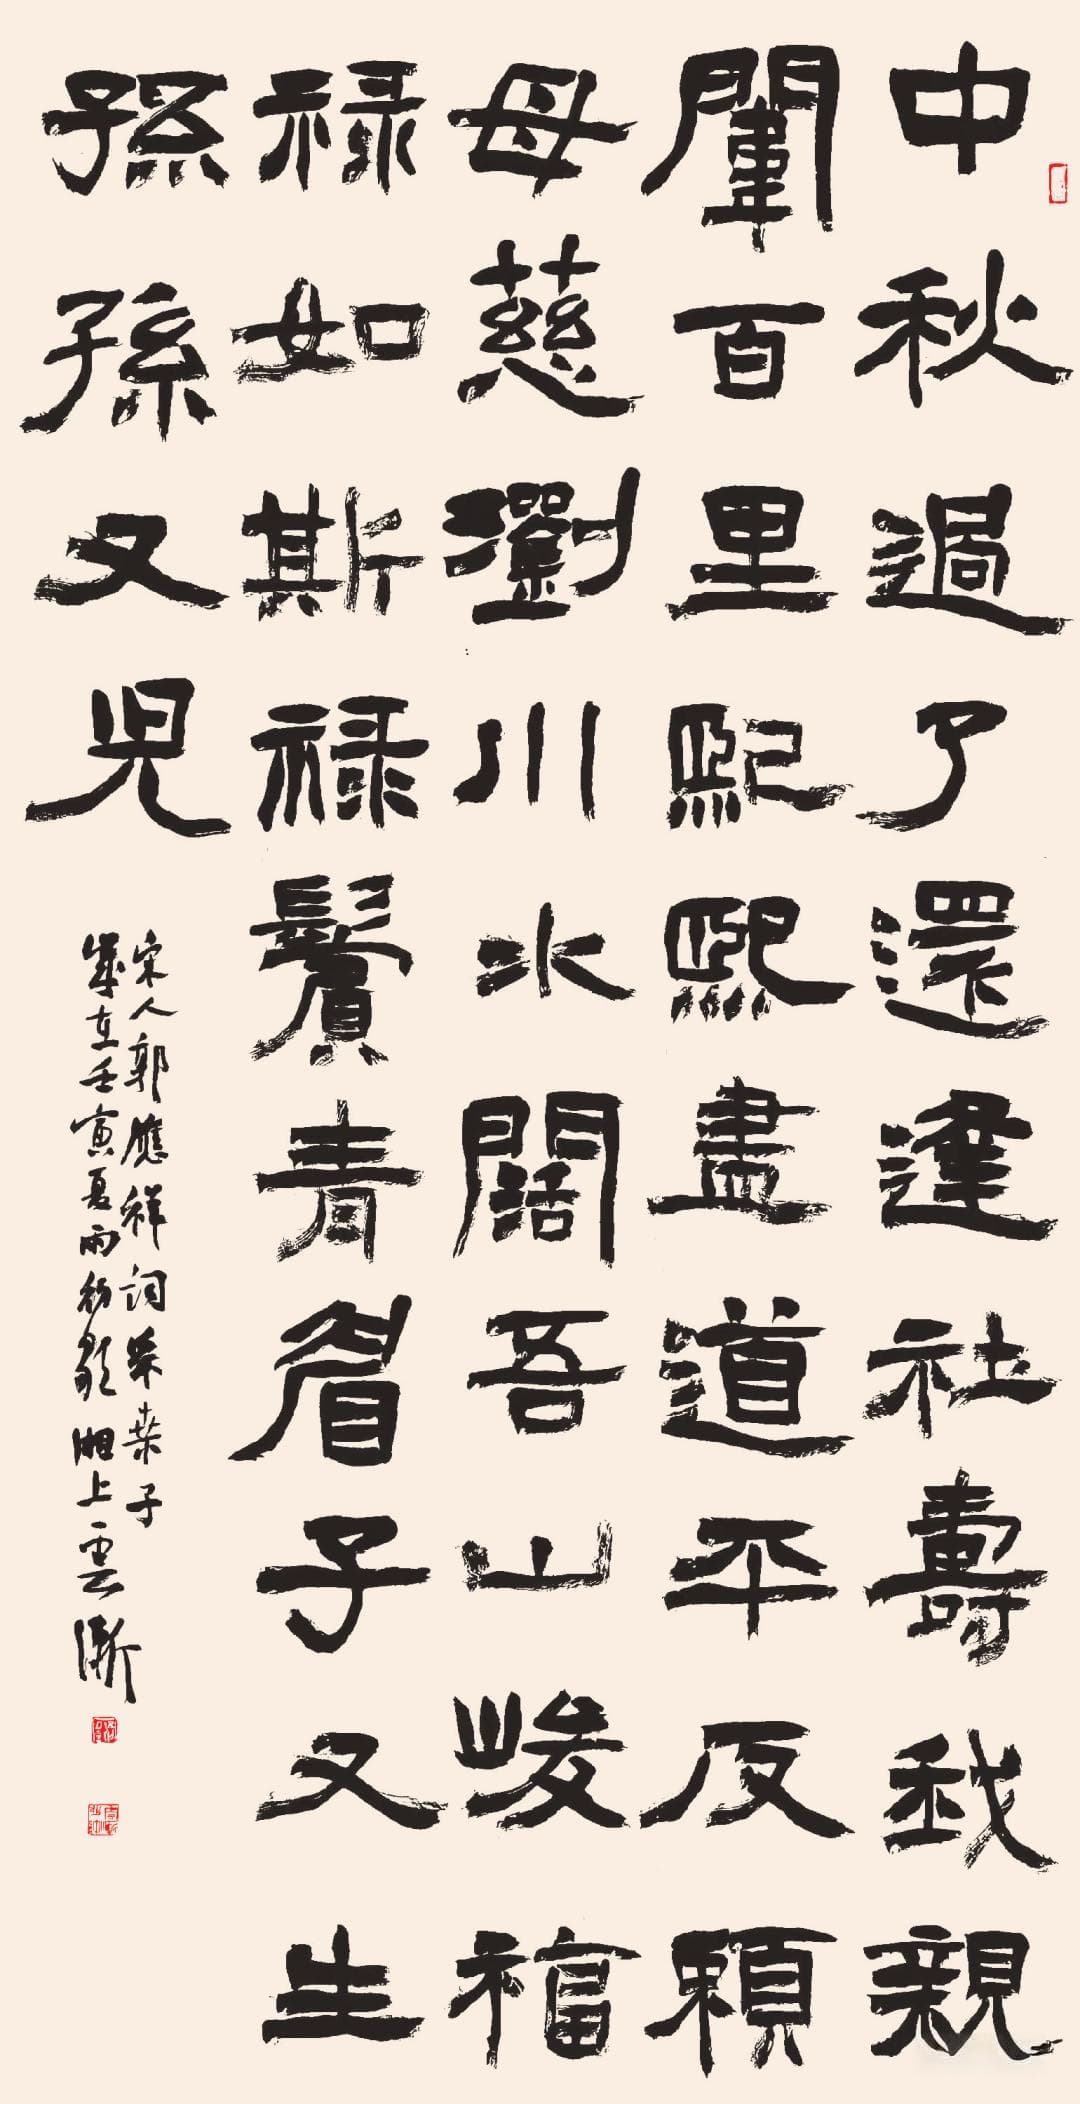 中秋過了還逢社壽我親
闈百里熙熙盡道平反賴
母慈瀏川水闊吾山峻福
禄如斯禄鬢青眉子又生
孫孫又兒
宋人郭應祥詞采桑子
歲在壬寅夏雨初歇湘上雲漸